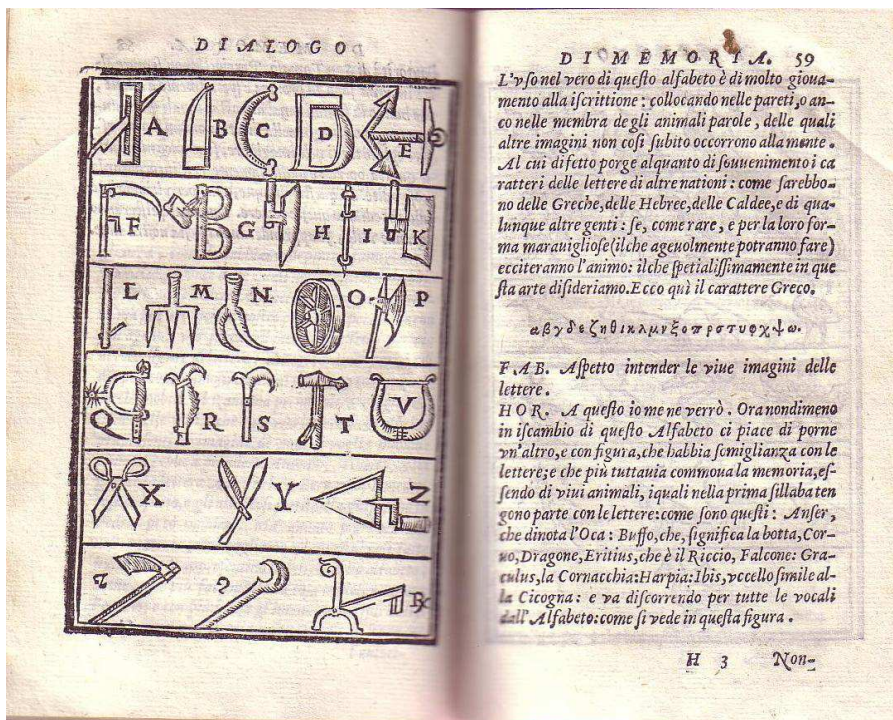 DIALOGO
A B C D E
F G H I K
L M N O P
Q R S T V
X Y Z
DI MEMORIA. 59
L'vſo nel vero di queſto alfabeto è di molto gioua-
mento alla iſcrittione: collocando nelle pareti, o an-
co nelle membra degli animali parole, delle quali
altre imagini non coſi ſubito occorrono alla mente.
Al cui difetto porge alquanto di ſouuenimento i ca
ratteri delle lettere di altre nationi: come ſarebbo-
no delle Greche, delle Hebree, delle Caldee, e di qua-
lunque altre genti: ſe, come rare, e per la loro for-
ma marauiglioſe (il che ageuolmente potranno fare)
ecciteranno l'animo: il che ſpetialiſſimamente in que
ſta arte diſideriamo. Ecco quì il carattere Greco.
αβγδεζηθικλμνξοπρστυφχψω.
FAB. Aſpetto intender le viue imagini delle
lettere.
HOR. A queſto io me ne verrò. Ora nondimeno
in iſcambio di queſto Alfabeto ci piace di porne
vn'altro, e con figura, che habbia ſomiglianza con le
lettere; e che più tuttauia commoua la memoria, eſ-
ſendo di viui animali, i quali nella prima ſillaba ten
gono parte con le lettere: come ſono queſti: Anſer,
che dinota l'Oca: Buffo, che, ſignifica la botta, Cor-
uo, Dragone, Eritius, che è il Riccio, Falcone: Gra-
culus, la Cornacchia: Harpia: Ibis, vccello ſimile al-
la Cicogna: e va diſcorrendo per tutte le vocali
dall'Alfabeto: come ſi vede in queſta figura.
H 3 Non-